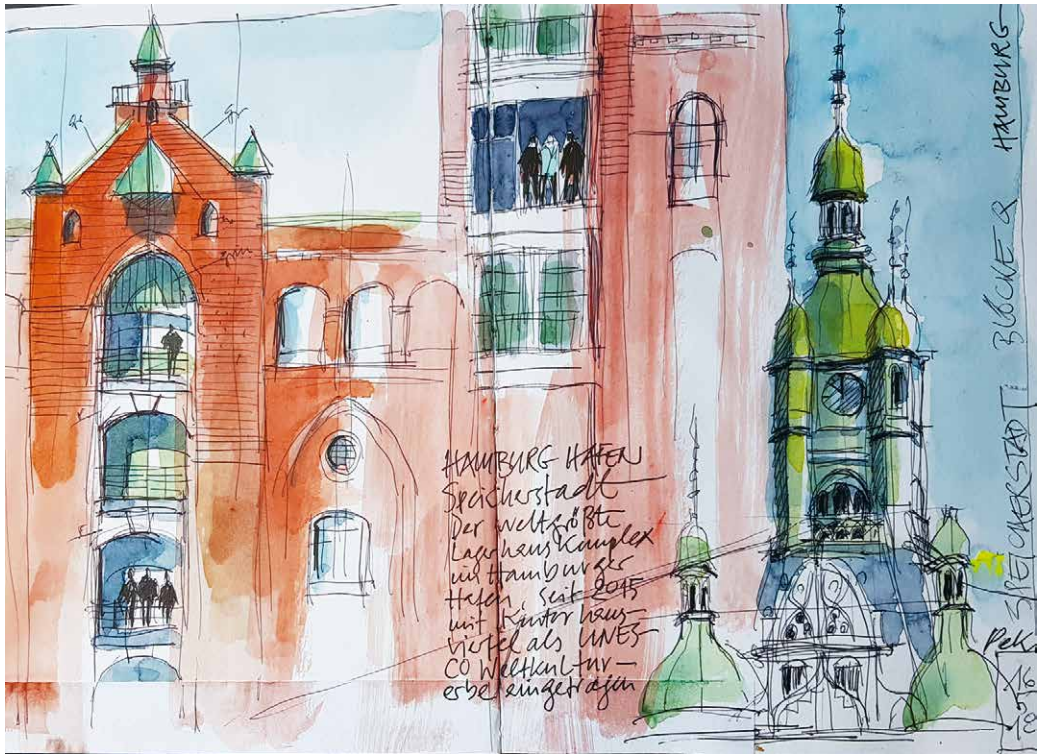 HAMBURG HAFEN
Speicherstadt
Der weltgrößte
Lagerhaus Komplex
im Hamburger
Hafen, seit 2015
mit Kontorhaus-
viertel als UNES-
CO Weltkultur-
erbe eingetragen
SPEICHERSTADT BLÖCKE Q HAMBURG
grün